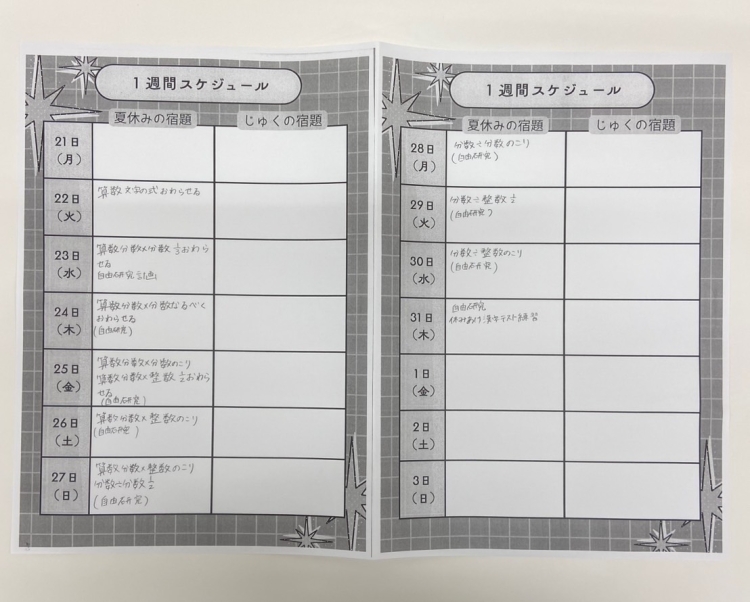 1週間スケジュール
夏休みの宿題 じゅくの宿題
21日
(月)
22日
(火)
算数 文字の式おわらせる
23日
(水)
算数分数×分数 1/2おわら
せる
自由研究 計画
24日
(木)
算数分数×分数なるべく
おわらせる
(自由研究)
25日
(金)
算数分数×分数のこり
算数分数×整数 1/2おわら
せる
(自由研究)
26日
(土)
算数分数×整数のこり
(自由研究)
27日
(日)
算数分数×整数のこり
分数÷分数 1/2
(自由研究)
1週間スケジュール
夏休みの宿題 じゅくの宿題
28日
(月)
分数÷分数のこり
(自由研究)
29日
(火)
分数÷整数 1/2
(自由研究)
30日
(水)
分数÷整数のこり
(自由研究)
31日
(木)
自由研究
休みあけ漢字テスト練習
1日
(金)
2日
(土)
3日
(日)